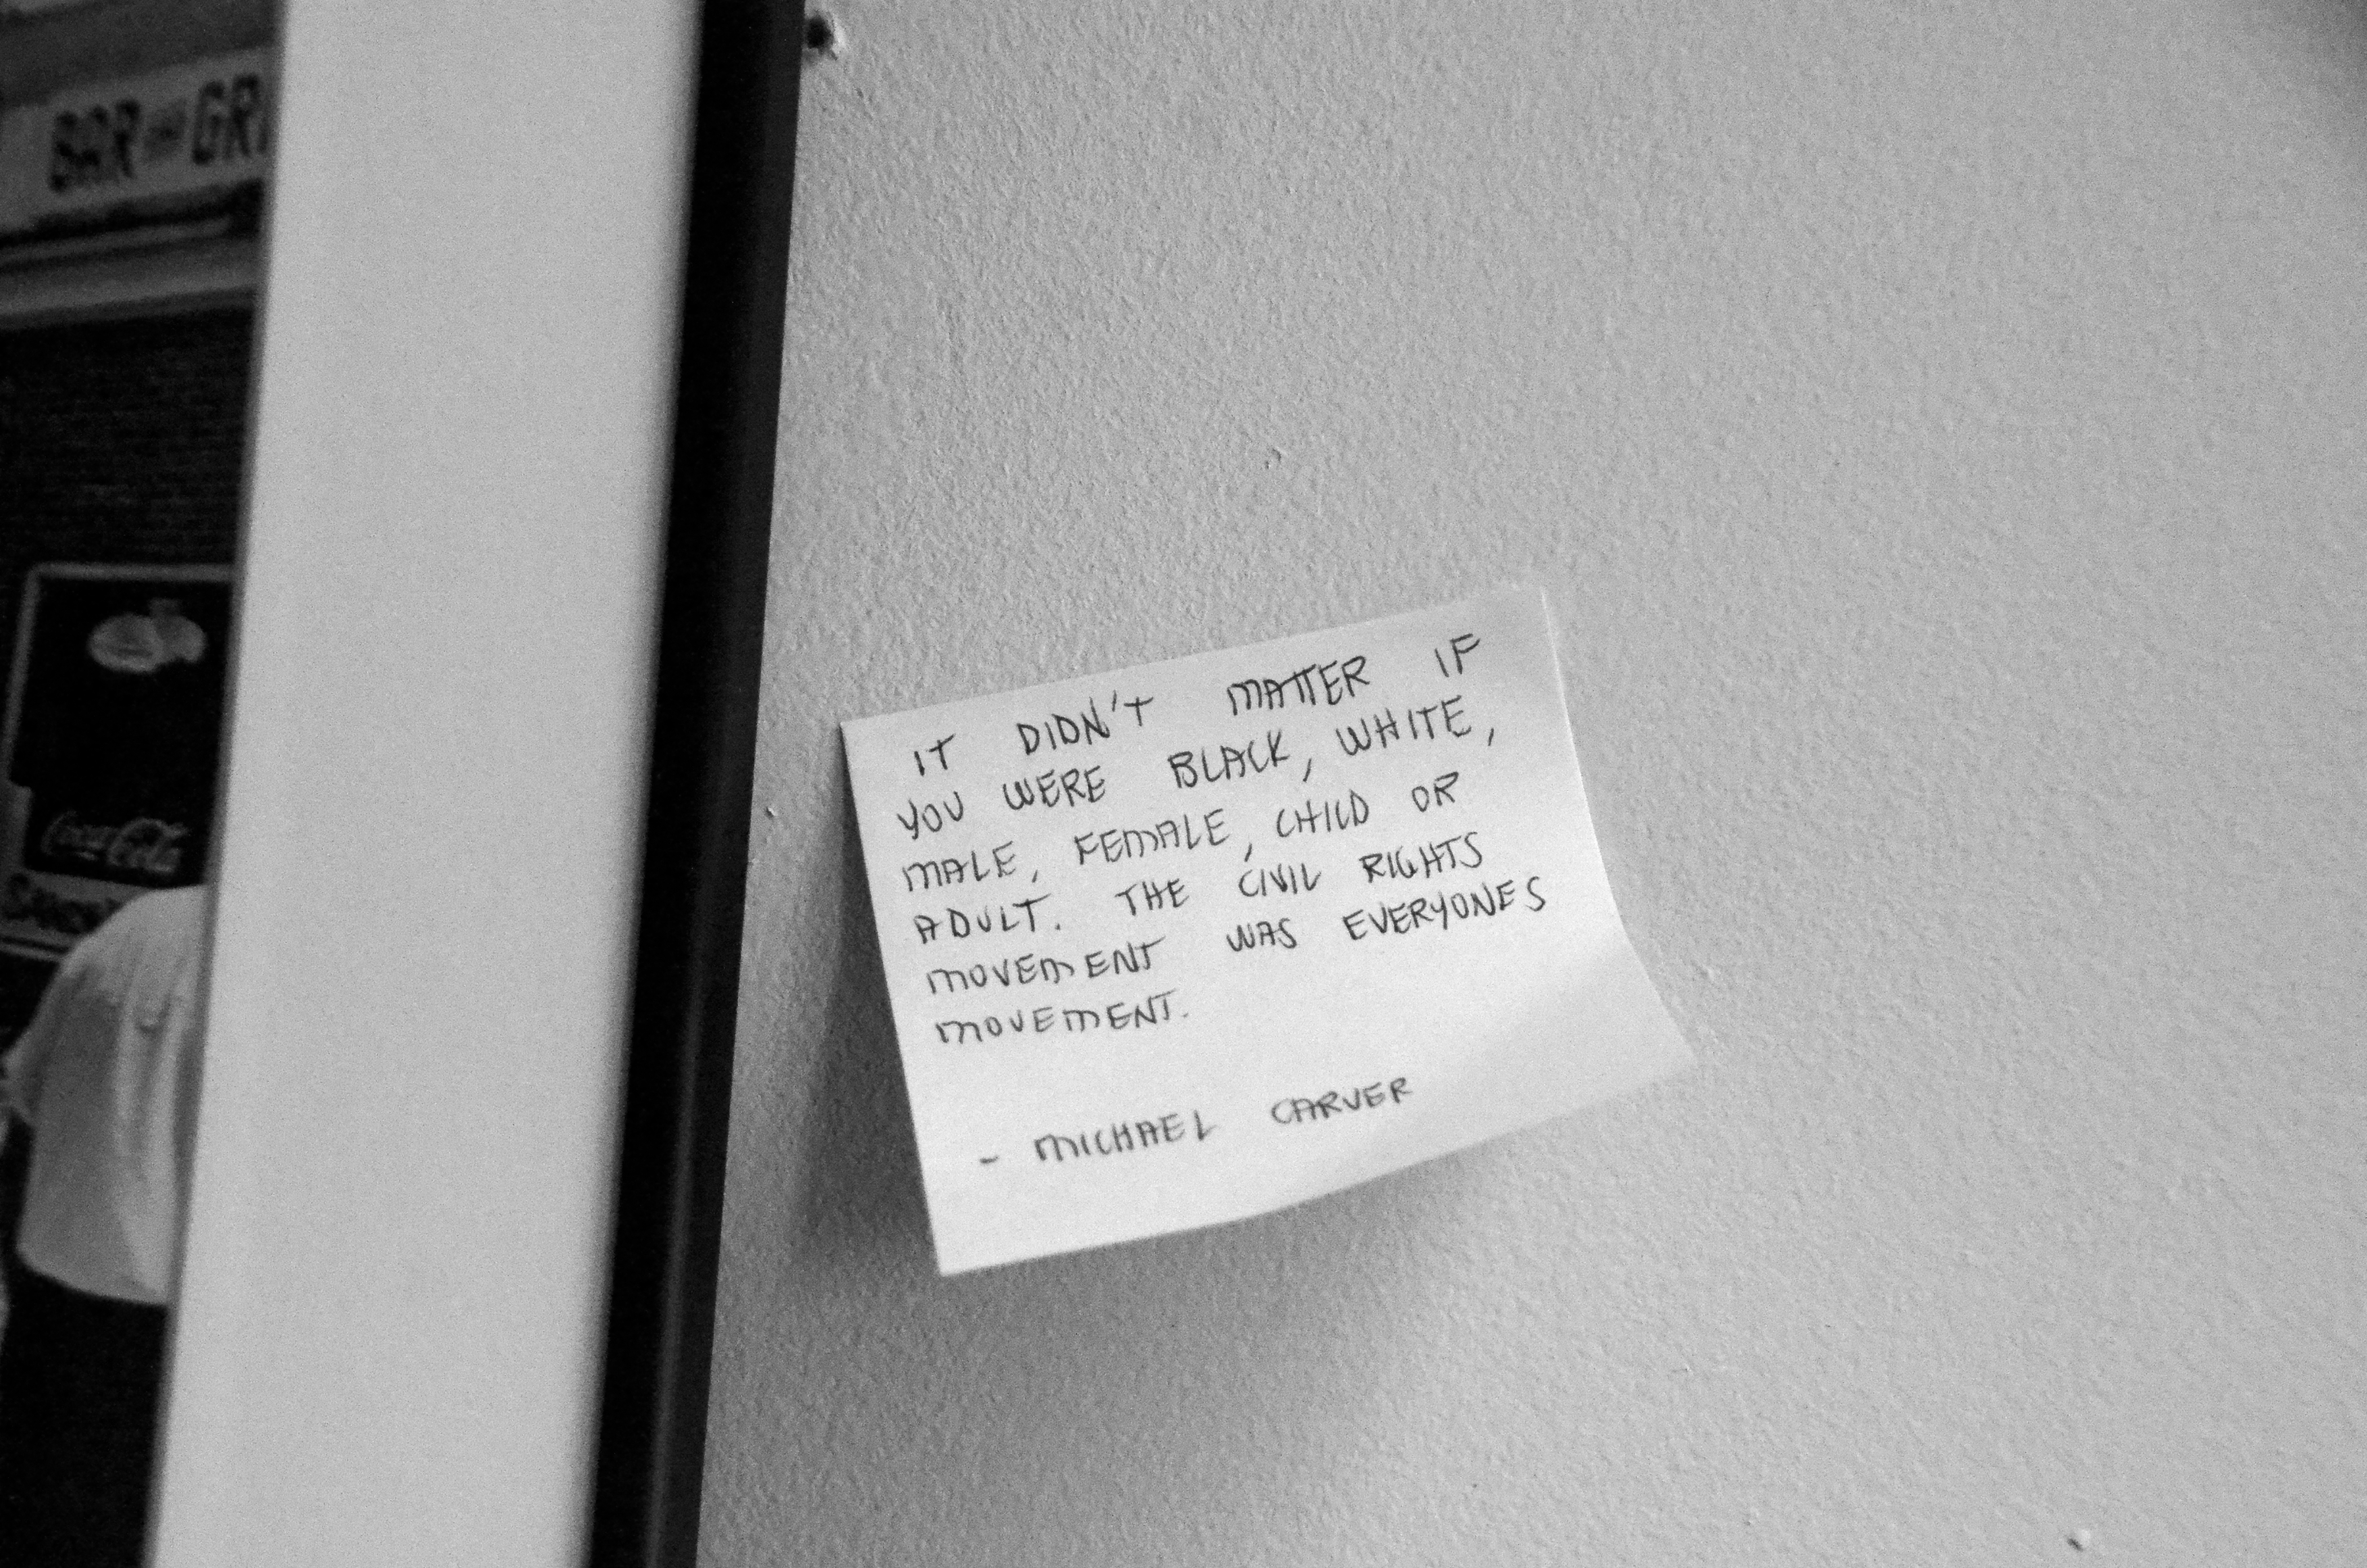 BAR AND GRI
Coca-Cola
IT DIDN'T MATTER IF
YOU WERE BLACK, WHITE,
MALE, FEMALE, CHILD OR
ADULT. THE CIVIL RIGHTS
MOVEMENT WAS EVERYONES
MOVEMENT.
- MICHAEL CARVER